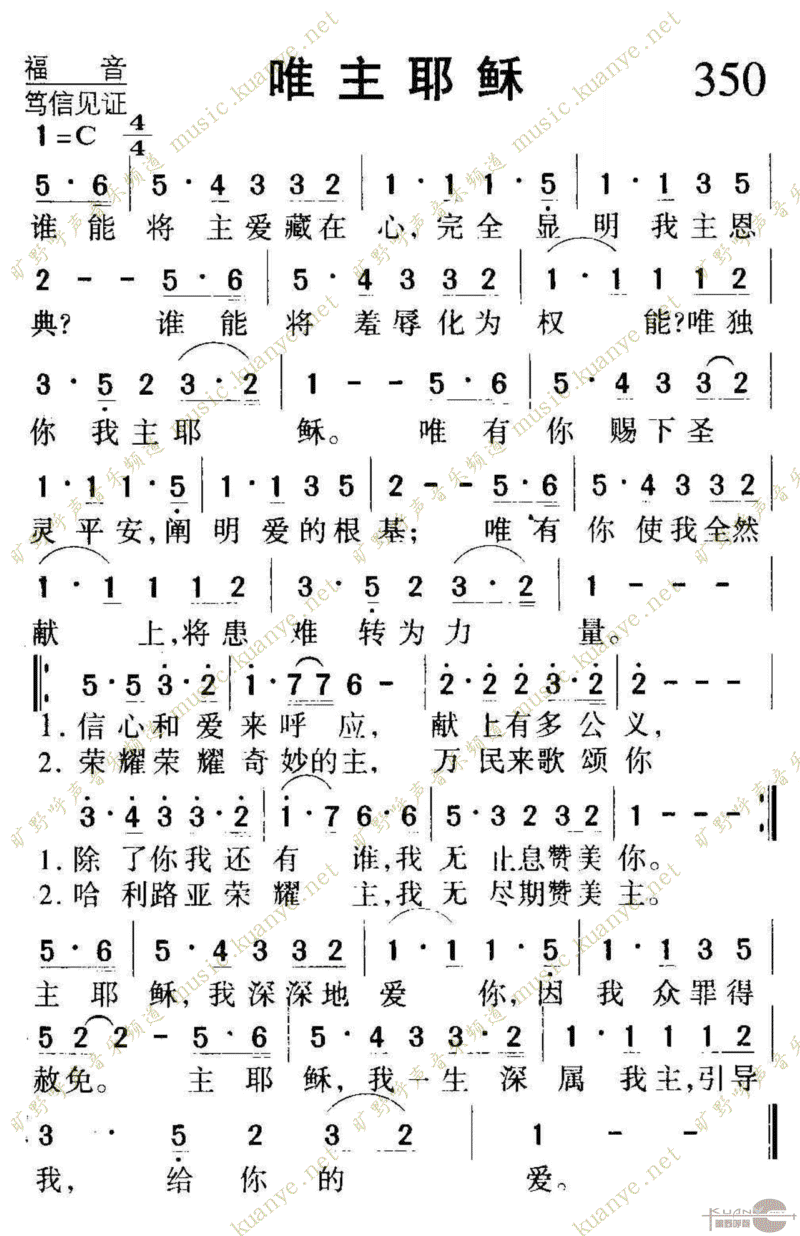 福 音
笃信见证
唯主耶稣
350
1=C 4/4
5·6 | 5·4 3 3 3 2 | 1·1 1·5 | 1·1 3 5
谁能将主爱藏在心,完全显明我主恩
2 - - 5·6 | 5·4 3 3 2 | 1·1 1 1 1 2
典? 谁能将羞辱化为权能?唯独
3·5 2 3·2 | 1 - - 5·6 | 5·4 3 3 2
你我主耶稣。 唯有你赐下圣
1·1 1·5 | 1·1 3 5 | 2 - - 5·6 | 5·4 3 3 3 2
灵平安,阐明爱的根基; 唯有你使我全然
1·1 1 1 1 2 | 3·5 2 3·2 | 1 - - -
献上,将患难转为力量。
5·5 3·2 | 1·7 7 6 - | 2·2 2 3·2 | 2 - - -
1.信心和爱来呼应, 献上有多公义,
2.荣耀荣耀奇妙的主, 万民来歌颂你
3·4 3 3·2 | 1·7 6·6 | 5·3 2 3 2 | 1 - - -
1.除了你我还有谁,我无止息赞美你。
2.哈利路亚荣耀主,我无尽期赞美主。
5·6 | 5·4 3 3 3 2 | 1·1 1·5 | 1·1 3 5
主耶稣,我深深地爱你,因我众罪得
5 2 2 - 5·6 | 5·4 3 3 3·2 | 1·1 1 1 2
赦免。 主耶稣,我一生深属我主,引导
3·5 2 3 2 | 1 - - -
我,给你的爱。
旷野呼声音乐频道 music.kuanye.net
KUANYE
旷野呼声